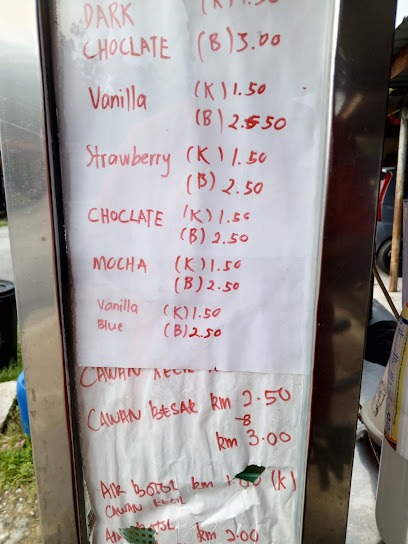 DARK (K) 1.50
CHOCLATE (B) 3.00
Vanilla (K) 1.50
(B) 2.50
Strawberry (K) 1.50
(B) 2.50
CHOCLATE (K) 1.50
(B) 2.50
MOCHA (K) 1.50
(B) 2.50
Vanilla (K) 1.50
Blue (B) 2.50
CAWAN KECIL
CAWAN BESAR km 2.50
-B
km 3.00
AIR BOTOL km 1.00 (K)
CAWAN KECIL
km 2.00